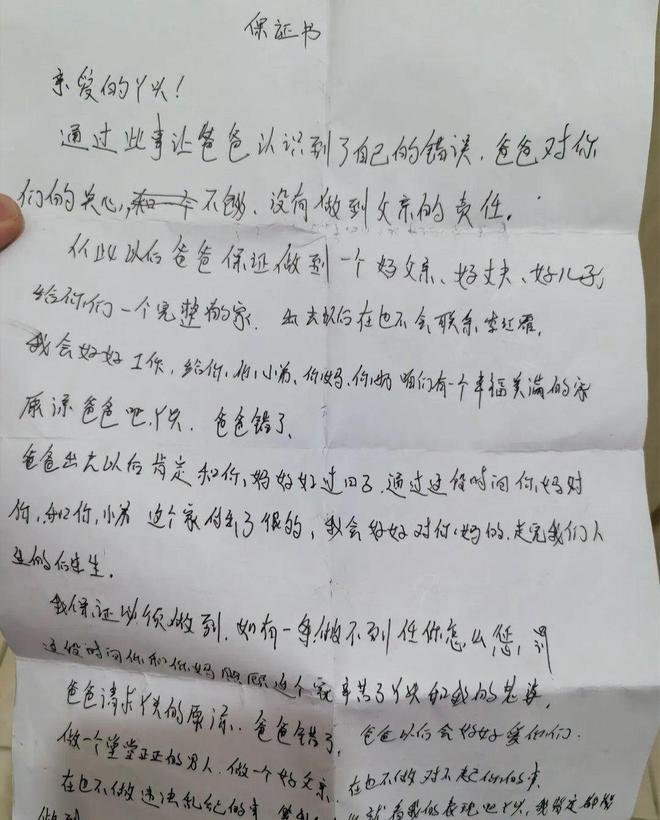 保证书
亲爱的丫头！
通过此事让爸爸认识到了自己的错误，爸爸对你
们的关心，不够、没有做到父亲的责任。
从此以后爸爸保证做到一个好父亲、好丈夫、好儿子，
给你们一个完整的家. 出去以后在也不会联系李红霞,
我会好好工作，给你，你小弟、你妈、你奶咱们有一个幸福美满的家
原谅爸爸吧，丫头. 爸爸错了、
爸爸出去以后肯定和你，妈好好过日子.通过这段时间你，妈对
你，和你，小弟 这个家付出了很多的，我会好好对你，妈的，走完我们人
生的
我保证必须做到.如有一条做不到任你怎么惩，罚
这段时间你和你妈照顾这个家 辛苦了丫头和我的老婆,
爸爸请求丫头的原谅. 爸爸错了, 爸爸以后会好好爱你们.
做一个堂堂正正的男人. 做一个好父亲. 在也不做对不起你们的事
在也不做违法乱纪的事 就看我的表现吧丫头，我肯定能够
做到